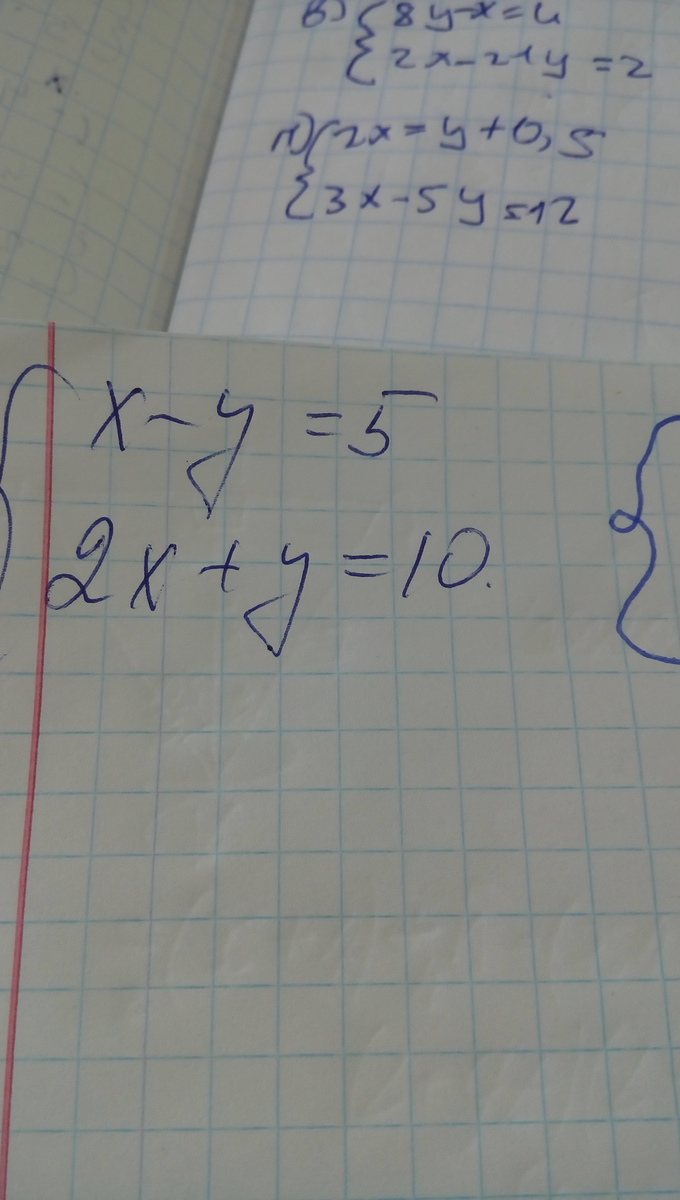 в) { 8y-x=4
2x-21y=2
г) { 2x=y+0,5
3x-5y=12
{ x-y=5
2x+y=10.
{